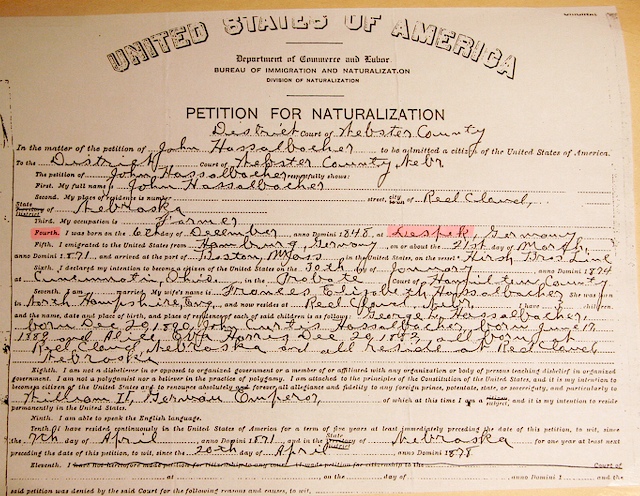 UNITED STATES OF AMERICA
Department of Commerce and Labor
BUREAU OF IMMIGRATION AND NATURALIZATION
DIVISION OF NATURALIZATION
PETITION FOR NATURALIZATION
District Court of Webster County
In the matter of the petition of John Hassalbacher to be admitted a citizen of the United States of America.
To the District Court of Webster County, Nebr
The petition of John Hassalbacher respectfully shows:
First. My full name John Hassalbacher
Second. My place of residence is number street, city of Red Cloud,
State of Nebraska
Third. My occupation is Farmer
Fourth. I was born on the 6th day of December anno Domini 1848, at Germany
Fifth. I emigrated to the United States from Hamburg, Germany, on or about the 21st day of March,
anno Domini 1871, and arrived at the port of Boston, Mass in the United States, on the vessel Line
Sixth. I declared my intention to become a citizen of the United States on the 30th day of January anno Domini 1874
at Ohio, in the Probate Court of Hamilton County
Seventh. I am married. My wife's name is Frances Elizabeth Hassalbacher She was born
in North Hampshire, Eng and now resides at Red Cloud, Nebr. I have children,
and the name, date and place of birth, and place of residence of each of said children is as follows: George W. Hassalbacher,
born Dec. 20, 1890, John Curtis Hassalbacher, born June 17,
1889 and Alice Eva Dec 20, 1882, all born at
Red Cloud, Nebraska and all reside at Red Cloud
Nebraska
Eighth. I am not a disbeliever in or opposed to organized government or a member of or affiliated with any organization or body of persons teaching disbelief in organized
government. I am not a polygamist nor a believer in the practice of polygamy. I am attached to the principles of the Constitution of the United States, and it is my intention to
become a citizen of the United States and to renounce absolutely and forever all allegiance and fidelity to any foreign prince, potentate, state, or sovereignty, and particularly to
William II, German Emperor, of which at this time I am a subject, and it is my intention to reside
permanently in the United States.
Ninth. I am able to speak the English language.
Tenth. I have resided continuously in the United States of America for a term of five years at least immediately preceding the date of this petition, to wit, since
the 7th day of April, anno Domini 1871 and in the State of Nebraska for one year at least next
preceding the date of this petition, to wit, since the 20th day of April anno Domini 1878
Eleventh. I have not heretofore made petition for citizenship to any court. I made petition for citizenship to the Court of
at on the day of anno Domini 1 and the
said petition was denied by the said Court for the following reasons and causes, to wit,